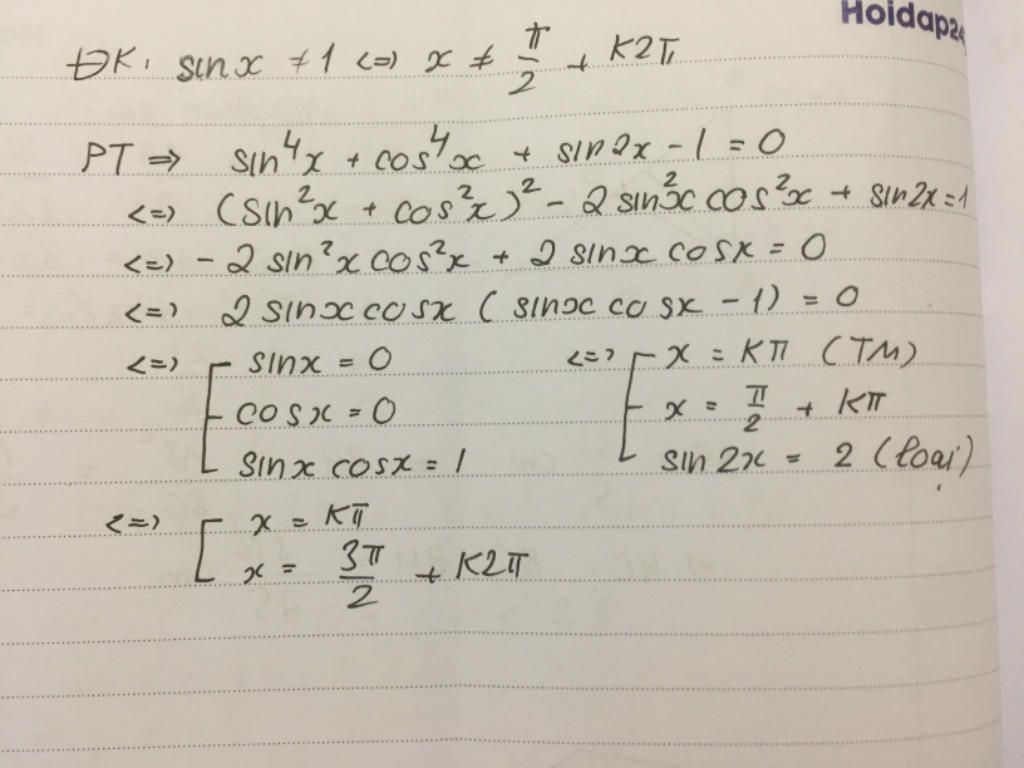 Hoidap24
ĐK: sinx ≠ 1 <=> x ≠ π/2 + K2π
PT => sin⁴x + cos⁴x + sin2x - 1 = 0
<=> (sin²x + cos²x)² - 2 sin²x cos²x + sin2x = 1
<=> - 2 sin²x cos²x + 2 sinx cosx = 0
<=> 2 sinx cosx ( sinx cosx - 1) = 0
<=> [ sinx = 0 <=> [ x = Kπ (TM)
cosx = 0 x = π/2 + Kπ
sinx cosx = 1 sin 2x = 2 (loại)
<=> [ x = Kπ
x = 3π/2 + K2π